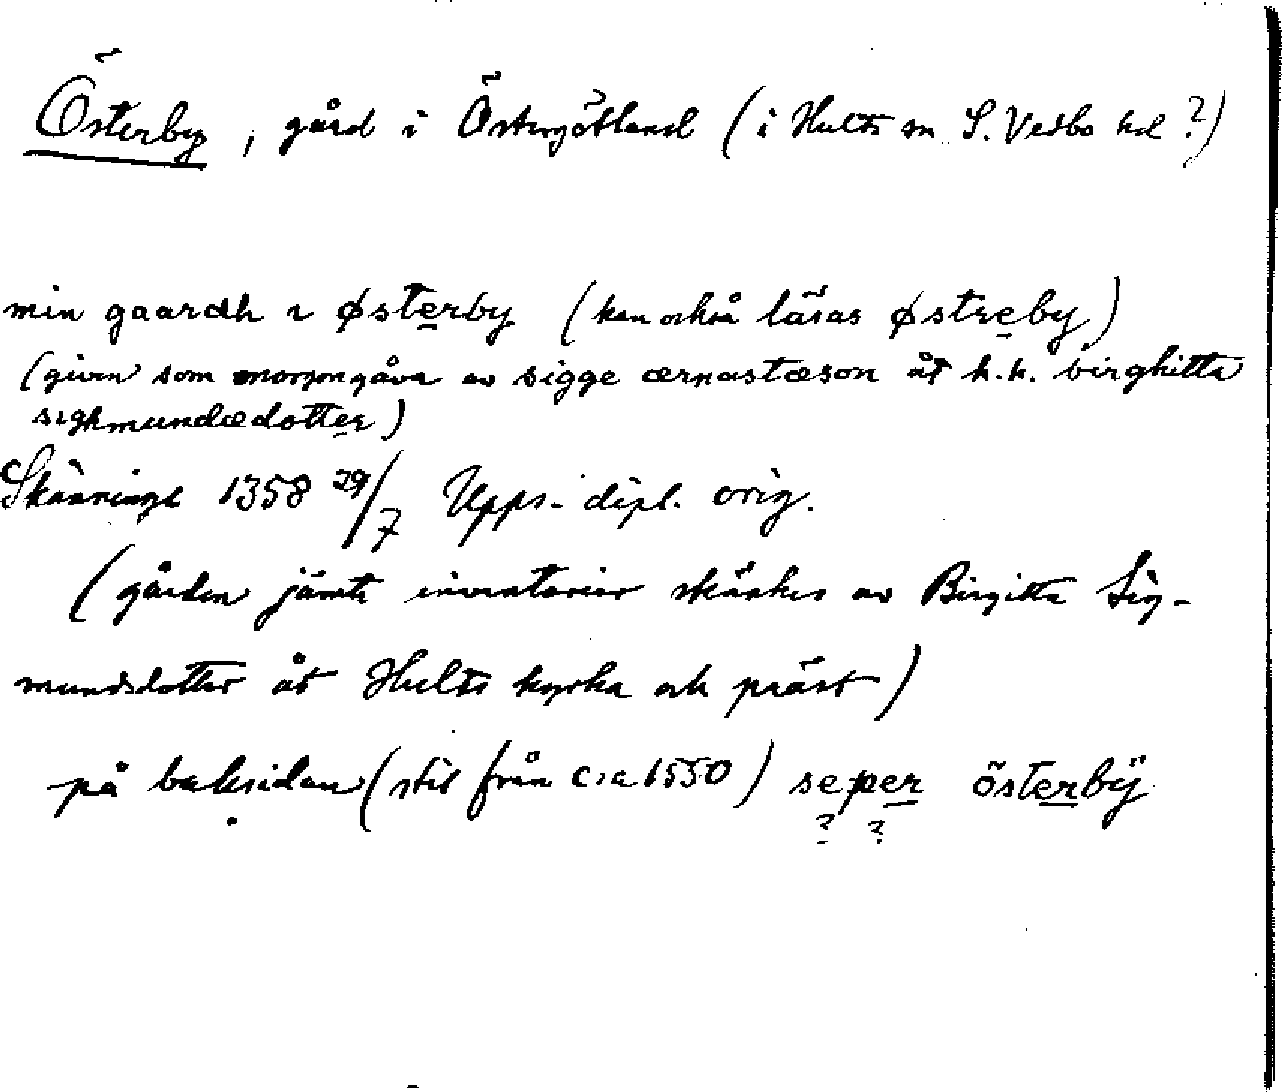 Österby, gård i Östergötland (i Hults sn S. Vedbo hd ?)
min gaardh i østerby (kan också läsas østreby)
(given som morgongåva av sigge ærnastæson åt h.h. birghitta
sighmundædotter)
Skänninge 1358 29/7 Upps. dipl. orig.
(gården jämte inventarier skänkes av Birgitta Sig-
mundsdotter åt Hults kyrka och präst)
på baksidan (stil från c:a 1550) seper österbÿ
? ?